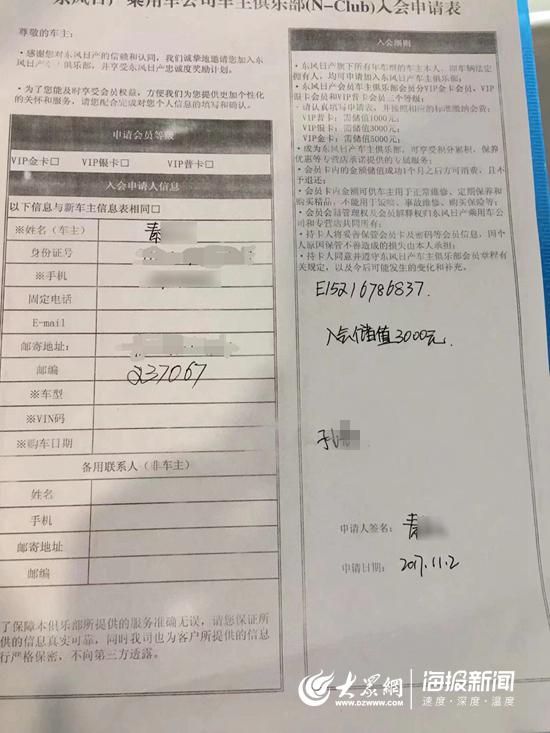 东风日产乘用车公司车主俱乐部(N-Club)入会申请表
尊敬的车主：
·感谢您对东风日产的信赖和认同，我们诚挚地邀请您加入东
风日产车主俱乐部，并享受东风日产忠诚度奖励计划。
·为了能及时享受会员权益，方便我们为您提供更加个性化
的关怀和服务，请您配合完成对您个人信息的填写和确认。
申请会员等级
VIP金卡□ VIP银卡□ VIP普卡□
入会申请人信息
以下信息与新车主信息表相同□
※姓名（车主） 秦
身份证号
※手机
固定电话
E-mail
邮寄地址:
邮编 237067
※车型
※VIN码
※购车日期
备用联系人（非车主）
姓名
手机
邮寄地址
邮编
了保障本俱乐部所提供的服务准确无误，请您保证所
供的信息真实可靠，同时我司也为客户所提供的信息
行严格保密，不向第三方透露。
入会细则
·东风日产旗下所有年车型的车主本人，即车辆法定
拥有人，均可申请加入东风日产车主俱乐部；
·东风日产会员俱乐部会员分VIP金卡会员、VIP
银卡会员和VIP普卡会员三个等级；
·请认真填写申请表，并按照相应的标准缴纳会费：
VIP普卡：需储值1000元；
VIP银卡：需储值3000元；
VIP金卡：需储值5000元。
·成为东风日产车主俱乐部，可享受积分累积、保养
优惠等专营店承诺提供的专属服务；
·会员卡内的金额储值成功1个月之后方可消费，且不
予退还；
·会员卡内金额可供车主用于正常维修、定期保养和
购买精品，不能用于钣喷、事故维修、购买保险等；
·会员会籍管理权及会员解释权归东风日产乘用车公
司和专营店共同所有；
·持卡人将妥善保管会员卡及密码等会员信息，因个
人原因保管不善造成的损失由本人承担；
·持卡人同意并遵守东风日产车主俱乐部会员章程有
关规定，以及今后可能发生的变化和补充。
E15216786837.
入会储值3000元.
申请人签名：
申请日期： 2017.11.2
大众網
WWW.DZWWW.COM
海报新闻
速度·深度·温度